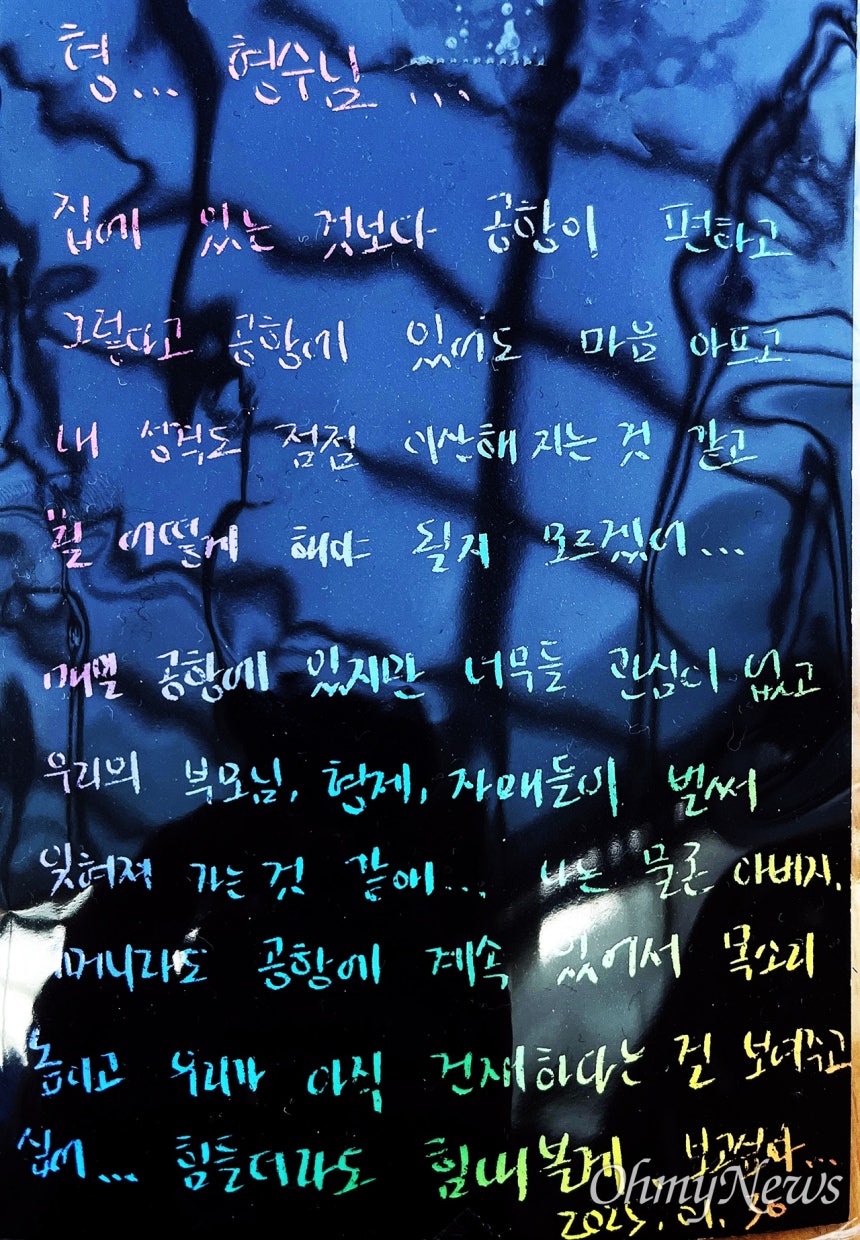 형... 형수님 ...
집에 있는 것보다 공항이 편하고
그렇다고 공항에 있어도 마음 아프고
내 성격도 점점 이상해 지는 것 같고
뭘 어떻게 해야 될지 모르겠어...
매일 공항에 있지만 너무들 관심이 없고
우리의 부모님, 형제, 자매들이 벌써
잊혀져 가는 것 같애... 나는 물론 아버지,
어머니라도 공항에 계속 있어서 목소리
높이고 우리가 아직 건재하다는 걸 보여주고
싶어... 힘들더라도 힘내볼게. 보고싶어...
2025. 01. 30
OhmyNews